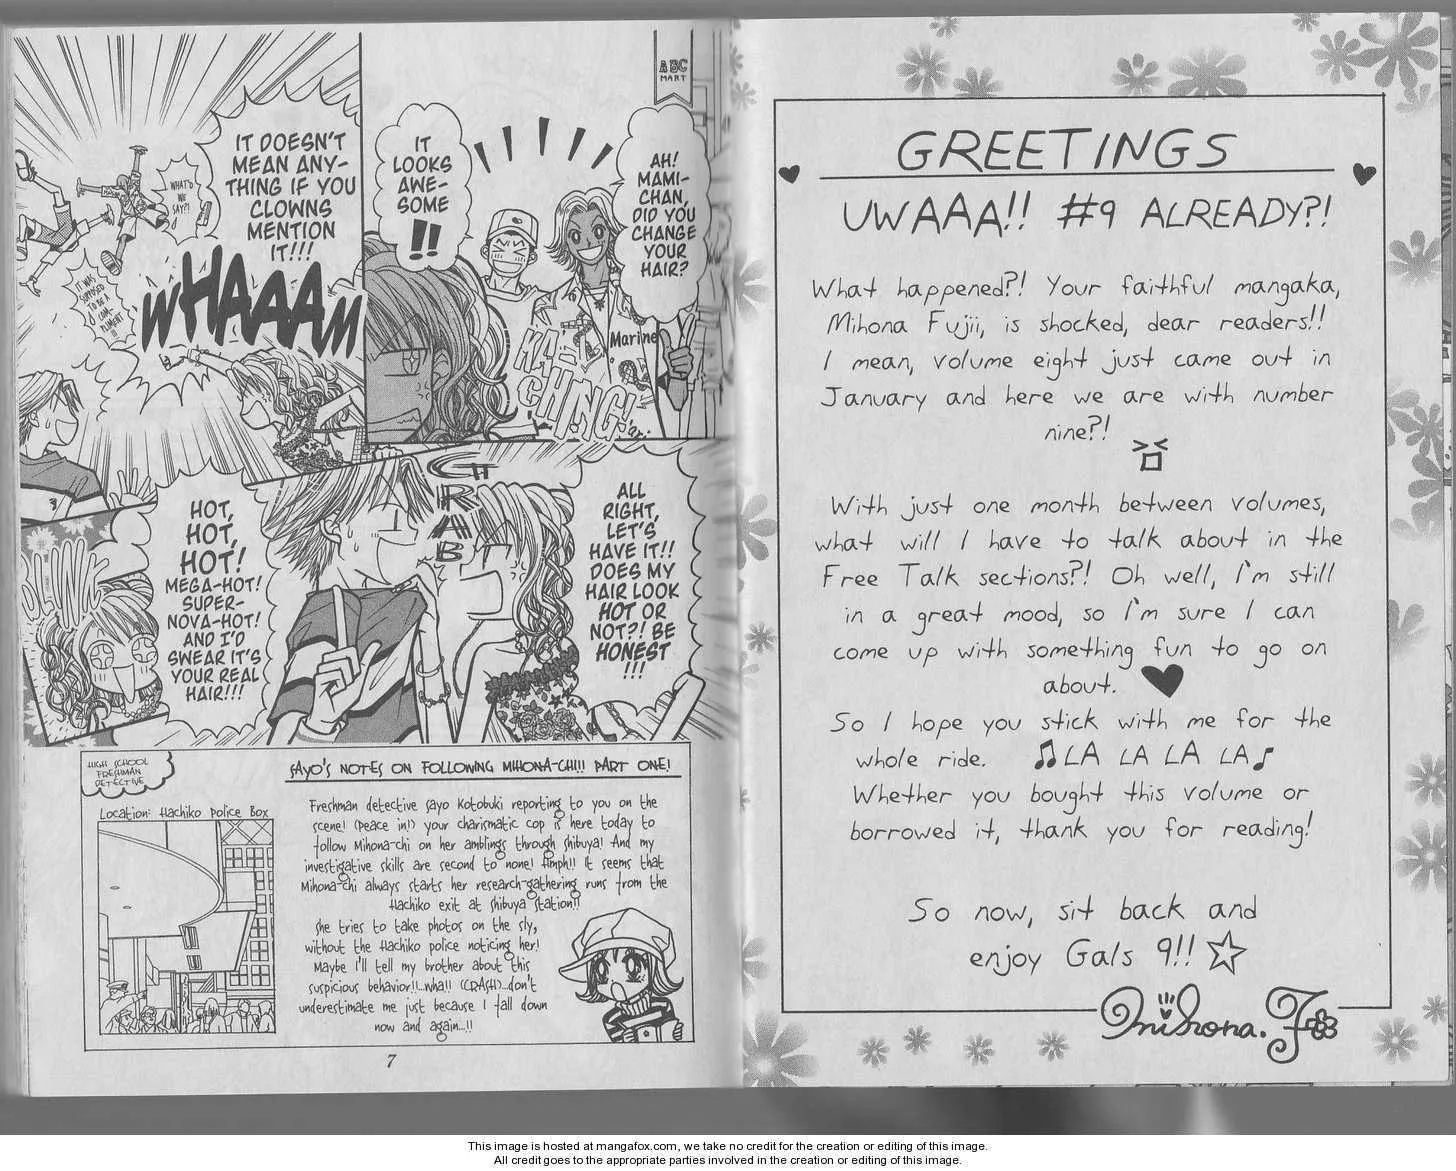 GREETINGS
UWAAA!! #9 ALREADY?!
What happened?! Your faithful mangaka,
Mihona Fujii, is shocked, dear readers!!
I mean, volume eight just came out in
January and here we are with number
nine?!
With just one month between volumes,
what will I have to talk about in the
Free Talk sections?! Oh well, I'm still
in a great mood, so I'm sure I can
come up with something fun to go on
about.
So I hope you stick with me for the
whole ride. ♫LA LA LA LA♪
Whether you bought this volume or
borrowed it, thank you for reading!
So now, sit back and
enjoy Gals 9!!☆
Mihona.F
ABC
MART
AH!
MAMI-
CHAN,
DID YOU
CHANGE
YOUR
HAIR?
IT
LOOKS
AWE-
SOME
!!
Marine
KA
CHING!
IT DOESN'T
MEAN ANY-
THING IF YOU
CLOWNS
MENTION
IT!!!
WHAT'D
WE
SAY?!
IT WAS
SUPPOSED
TO BE A
COM-
PLIMENT
!!!
WHAAAM
GRAB
ALL
RIGHT,
LET'S
HAVE IT!!
DOES MY
HAIR LOOK
HOT OR
NOT?! BE
HONEST
!!!
HOT,
HOT,
HOT!
MEGA-HOT!
SUPER-
NOVA-HOT!
AND I'D
SWEAR IT'S
YOUR REAL
HAIR!!!
HIGH SCHOOL
FRESHMAN
DETECTIVE
SAYO'S NOTES ON FOLLOWING MIHONA-CHI!! PART ONE!
Location: Hachiko Police Box
Freshman detective Sayo Kotobuki reporting to you on the
scene! (Peace in!) Your charismatic cop is here today to
follow Mihona-chi on her amblings through Shibuya! And my
investigative skills are second to none! Hmph!! It seems that
Mihona-chi always starts her research-gathering runs from the
Hachiko exit at Shibuya Station!!
She tries to take photos on the sly,
without the Hachiko police noticing her!
Maybe I'll tell my brother about this
suspicious behavior!!...Wha!! (CRASH)...don't
underestimate me just because I fall down
now and again...!!
7
This image is hosted at mangafox.com, we take no credit for the creation or editing of this image.
All credit goes to the appropriate parties involved in the creation or editing of this image.